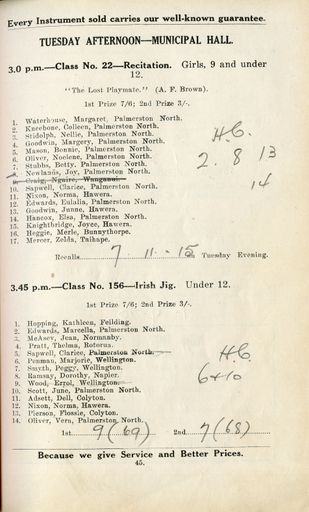 Every Instrument sold carries our well-known guarantee.
TUESDAY AFTERNOON—MUNICIPAL HALL.
3.0 p.m.—Class No. 22—Recitation. Girls, 9 and under
12.
"The Lost Playmate." (A. F. Brown).
1st Prize 7/6; 2nd Prize 3/-.
1. Waterhouse, Margaret, Palmerston North.
2. Kneebone, Colleen, Palmerston North.
3. Stidolph, Nellie, Palmerston North.
4. Goodwin, Margery, Palmerston North.
5. Mason, Bonnie, Palmerston North.
6. Oliver, Noelene, Palmerston North.
7. Stubbs, Betty, Palmerston North.
8. Newlands, Joy, Palmerston North.
9. Craig, Ngaire, Wanganui.
10. Sapwell, Clarice, Palmerston North.
11. Nixon, Norma, Hawera.
12. Edwards, Eulalia, Palmerston North.
13. Goodwin, Junne, Hawera.
14. Hancox, Elsa, Palmerston North.
15. Knightbridge, Joyce, Hawera.
16. Heggie, Merle, Bunnythorpe.
17. Mercer, Zelda, Taihape.
H.C.
2. 8 13
14
Recalls 7 11 15 Tuesday Evening.
3.45 p.m.—Class No. 156—Irish Jig. Under 12.
1st Prize 7/6; 2nd Prize 3/-.
1. Hopping, Kathleen, Feilding.
2. Edwards, Marcella, Palmerston North.
3. McAsey, Jean, Normanby.
4. Pratt, Thelma, Rotorua.
5. Sapwell, Clarice, Palmerston North.
6. Penman, Marjorie, Wellington.
7. Smyth, Peggy, Wellington.
8. Ramsay, Dorothy, Napier.
9. Wood, Errol, Wellington.
10. Scott, June, Palmerston North.
11. Adsett, Dell, Colyton.
12. Nixon, Norma, Hawera.
13. Pierson, Flossie, Colyton.
14. Oliver, Vera, Palmerston North.
H.C.
6+10
1st 9 (69) 2nd 7 (68)
Because we give Service and Better Prices.
45.